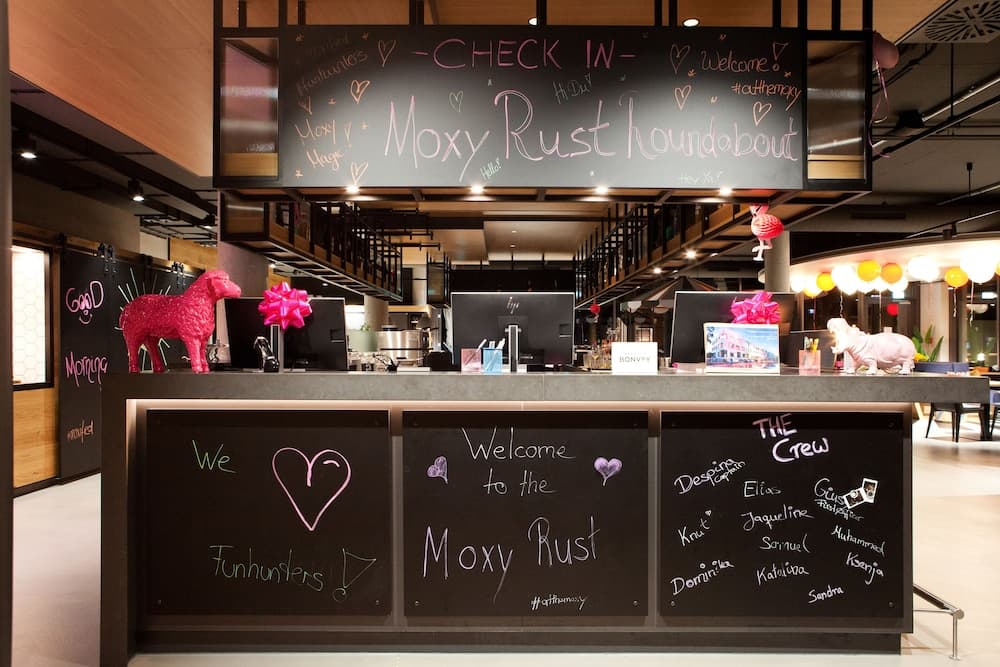 -CHECK IN-
#funhunters
Welcome!
#atthemoxy
Hi Du!
Moxy
Magic!
Moxy Rust Roundabout
Hello!
GOOD
Morning
hp
BONVOY
We
Funhunters!
Welcome
to the
Moxy Rust
#atthemoxy
THE
Crew
Despina
Captain
Elias
Gius
Knut
Jaqueline
Samuel
Muhammad
Dominika
Katalina
Ksenja
Sandra